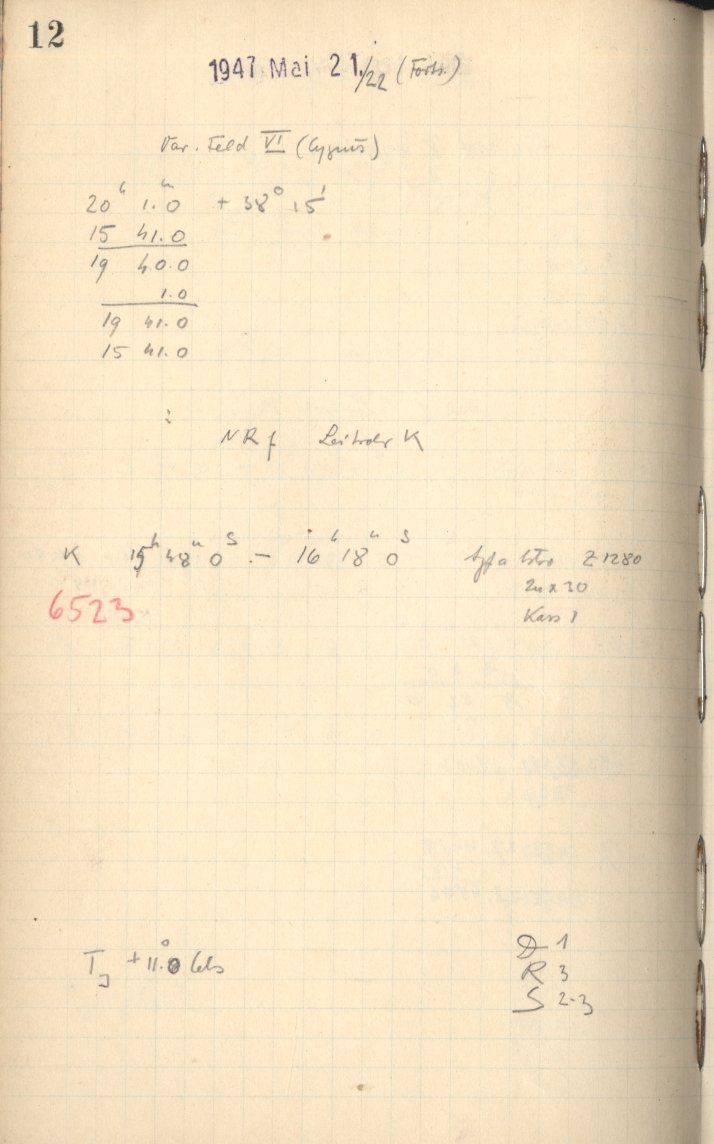 12
1947 Mai 21./22 (Forts.)
Var. Feld VI (Cygnus)
20ʰ 1.0ᵐ + 38° 15'
15 41.0
19 40.0
1.0
19 41.0
15 41.0
NRf Leitrohr K
K 15ʰ 48ᵐ 0ˢ - 16ʰ 18ᵐ 0ˢ Agfa Astro Z1280
6523
24x30
Kass 1
T +11.0° Cels
D 1
R 3
S 2-3